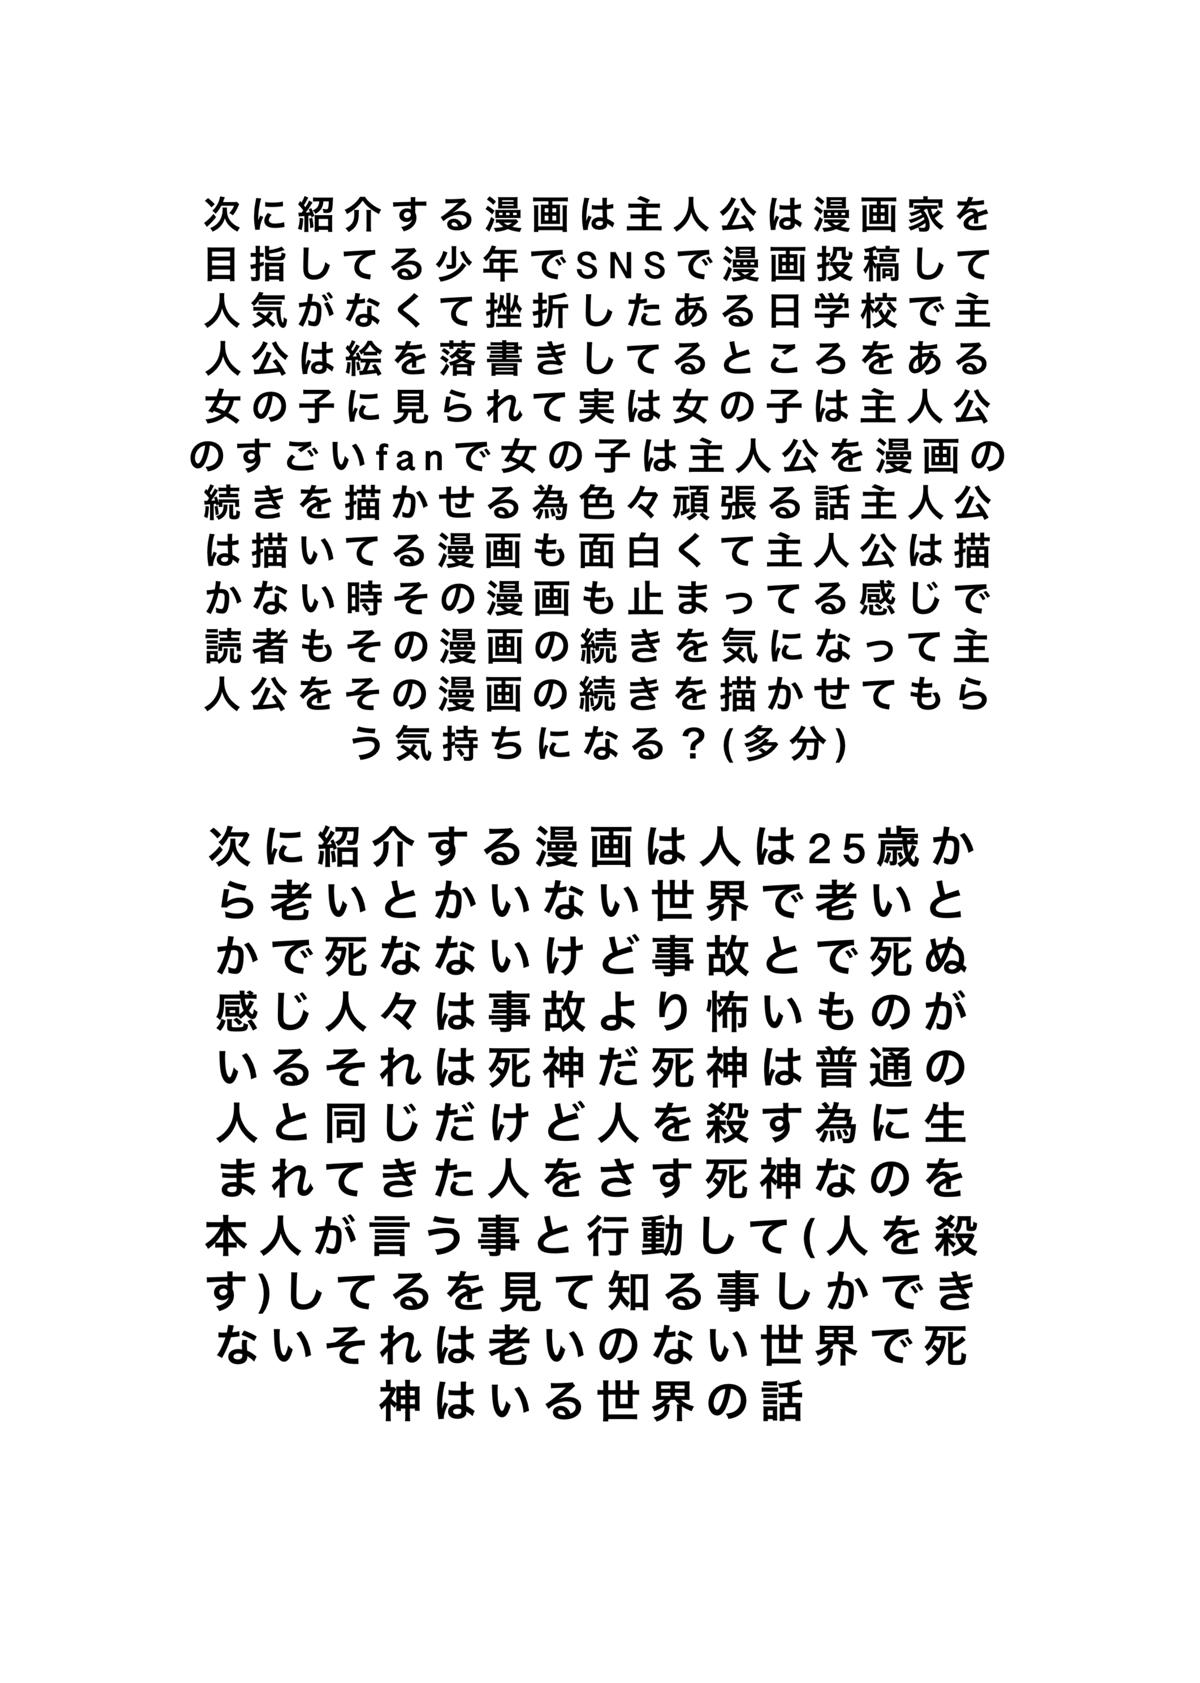 次に紹介する漫画は主人公は漫画家を
目指してる少年でSNSで漫画投稿して
人気がなくて挫折したある日学校で主
人公は絵を落書きしてるところをある
女の子に見られて実は女の子は主人公
のすごいfanで女の子は主人公を漫画の
続きを描かせる為色々頑張る話主人公
は描いてる漫画も面白くて主人公は描
かない時その漫画も止まってる感じで
読者もその漫画の続きを気になって主
人公をその漫画の続きを描かせてもら
う気持ちになる？(多分)
次に紹介する漫画は人は25歳か
ら老いとかいない世界で老いと
かで死なないけど事故とで死ぬ
感じ人々は事故より怖いものが
いるそれは死神だ死神は普通の
人と同じだけど人を殺す為に生
まれてきた人をさす死神なのを
本人が言う事と行動して(人を殺
す)してるを見て知る事しかでき
ないそれは老いのない世界で死
神はいる世界の話